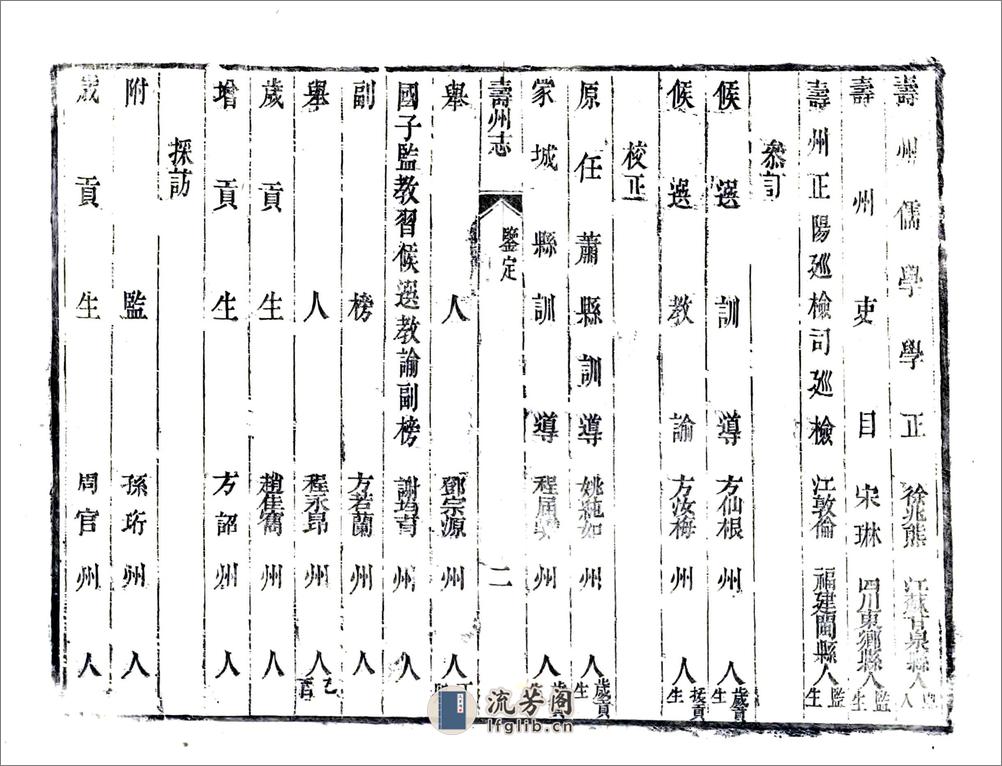 壽州儒學學正 徐兆熊 江蘇甘泉縣人
壽州吏目 宋琳 四川東鄉縣人 監生
壽州正陽廵檢司廵檢 江敦倫 福建閩縣人 監生
叅訂
候選訓導 方仙根 州人 歲貢生
候選教諭 方汝梅 州人 拔貢生
校正
原任蕭縣訓導 姚純如 州人 歲貢生
蒙城縣訓導 程 州人 歲貢
壽州志 鑒定 二
舉人 鄧宗源 州人
國子監教習候選教諭副榜 謝 州人
副榜 方若蘭 州人
舉人 程永昂 州人 己酉
歲貢生 趙隹 州人
增貢生 方詔 州人
採訪
附監 孫珩 州人
歲貢生 周官 州人
流芳阁
lfglib.cn